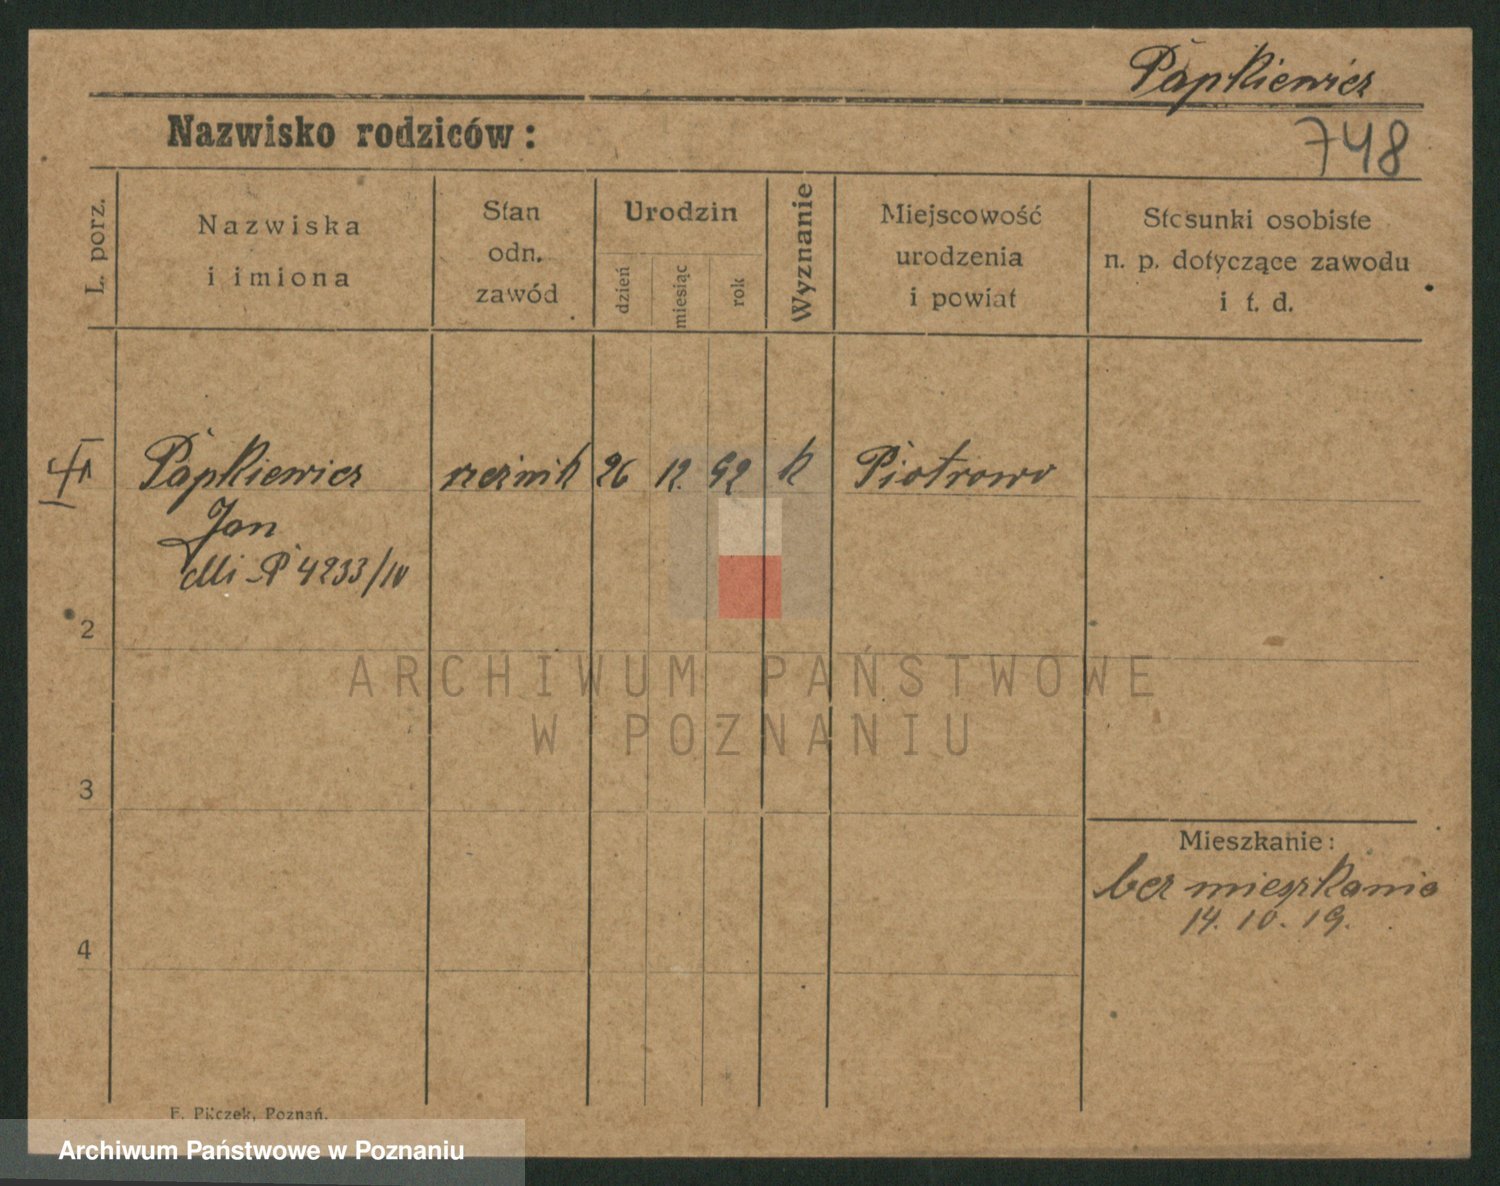 Papkiewicz
Nazwisko rodziców:
748
L. porz.
Nazwiska
i imiona
Stan
odn.
zawód
Urodzin
dzień
miesiąc
rok
Wyznanie
Miejscowość
urodzenia
i powiat
Stosunki osobiste
n. p. dotyczące zawodu
i t. d.
Papkiewicz rzeźnik 26 12. 92 k Piotrowo
Jan
4233/IV
2
ARCHIWUM PAŃSTWOWE
W POZNANIU
3
Mieszkanie:
bez mieszkania
14. 10. 19.
4
F. Pilczek, Poznań.
Archiwum Państwowe w Poznaniu